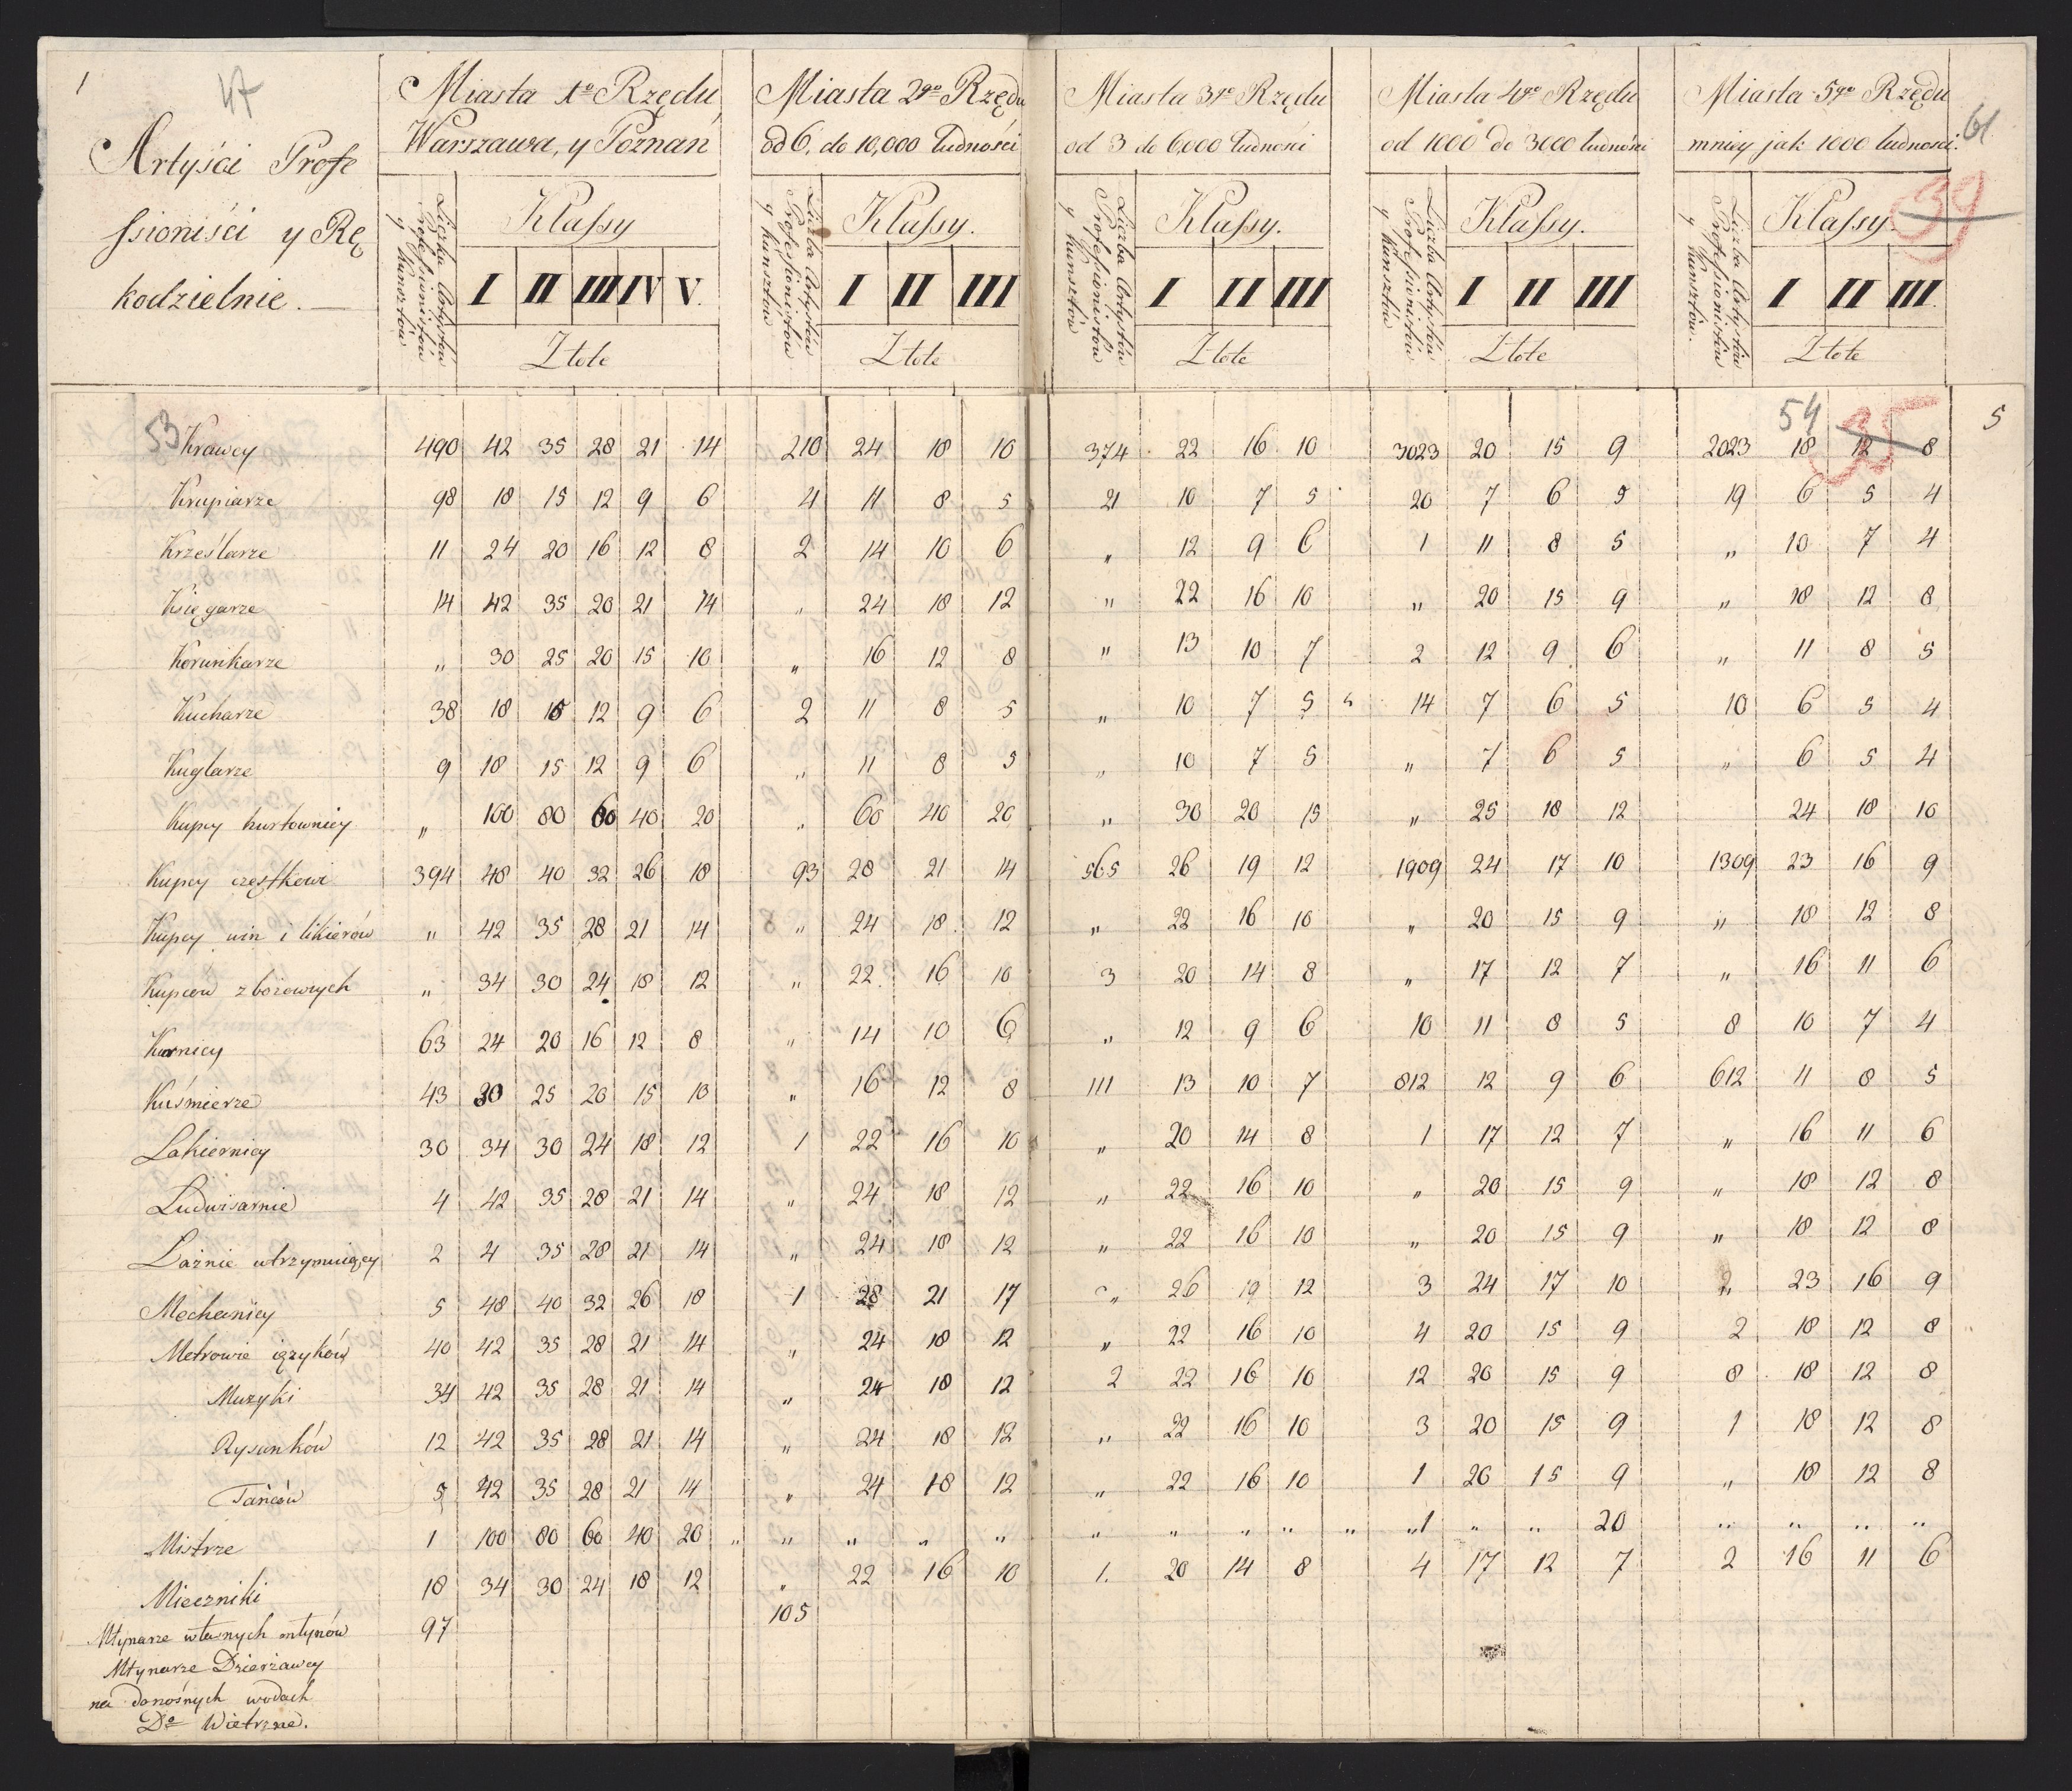 1
47
Artyści Profe
ssioniści y Rę
kodzielnie. —
Miasta 1o Rzędu
Warszawa, y Poznań
Liczba Artystów Professionistów y Kunsztów
Klassy
I II III IV V.
Złote
Miasta 2go Rzędu
od 6. do 10,000 ludności
Liczba Artystów Professionistów y Kunsztów
Klassy.
I II III
Złote
Miasta 3go Rzędu
od 3 do 6,000 ludności
Liczba Artystów Professionistów y Kunsztów
Klassy.
I II III
Złote
Miasta 4go Rzędu
od 1000 do 3000 ludności
Liczba Artystów Professionistów y Kunsztów
Klassy.
I II III
Złote
Miasta 5go Rzędu
mniey jak 1000 ludności.
Liczba Artystów Professionistów y Kunsztów.
Klassy.
I II III.
Złote
61
39
53
54
35
5
Krawcy 490 42 35 28 21 14 210 24 18 10 374 22 16 10 3023 20 15 9 2023 18 12 8
Krupiarze 98 18 15 12 9 6 4 11 8 5 21 10 7 5 20 7 6 5 19 6 5 4
Krześlarze 11 24 20 16 12 8 2 14 10 6 „ 12 9 6 1 11 8 5 „ 10 7 4
Księgarze 14 42 35 28 21 14 „ 24 18 12 „ 22 16 10 „ 20 15 9 „ 18 12 8
Korunkarze „ 30 25 20 15 10 „ 16 12 8 „ 13 10 7 2 12 9 6 „ 11 8 5
Kucharze 38 18 15 12 9 6 2 11 8 5 „ 10 7 5 14 7 6 5 10 6 5 4
Kuglarze 9 18 15 12 9 6 „ 11 8 5 „ 10 7 5 „ 7 6 5 „ 6 5 4
Kupcy hurtownicy „ 100 80 60 40 20 „ 60 40 20 „ 30 20 15 „ 25 18 12 24 18 10
Kupcy cząstkowi 394 48 40 32 26 18 93 28 21 14 565 26 19 12 1909 24 17 10 1309 23 16 9
Kupcy win i likierów „ 42 35 28 21 14 „ 24 18 12 „ 22 16 10 „ 20 15 9 „ 18 12 8
Kupców zbożowych „ 34 30 24 18 12 „ 22 16 10 3 20 14 8 „ 17 12 7 „ 16 11 6
Kurnicy 63 24 20 16 12 8 „ 14 10 6 „ 12 9 6 10 11 8 5 8 10 7 4
Kuśmierze 43 30 25 20 15 10 „ 16 12 8 111 13 10 7 812 12 9 6 612 11 8 5
Lakiernicy 30 34 30 24 18 12 1 22 16 10 „ 20 14 8 1 17 12 7 „ 16 11 6
Ludwisarnie 4 42 35 28 21 14 „ 24 18 12 „ 22 16 10 „ 20 15 9 „ 18 12 8
Łaźnie utrzymuiący 2 4 35 28 21 14 „ 24 18 12 „ 22 16 10 „ 20 15 9 „ 18 12 8
Mechanicy 5 48 40 32 26 18 1 28 21 17 „ 26 19 12 3 24 17 10 2 23 16 9
Metrowie ięzyków 40 42 35 28 21 14 „ 24 18 12 „ 22 16 10 4 20 15 9 2 18 12 8
Muzyki 34 42 35 28 21 14 „ 24 18 12 2 22 16 10 12 20 15 9 8 18 12 8
Rysunków 12 42 35 28 21 14 „ 24 18 12 „ 22 16 10 3 20 15 9 1 18 12 8
Tańców 5 42 35 28 21 14 „ 24 18 12 „ 22 16 10 1 20 15 9 „ 18 12 8
Mistrze 1 100 80 60 40 20 „ „ „ „ „ „ „ „ „ „ „1 „ „ 20 „ „ „ „
Mieczniki 18 34 30 24 18 12 „ 22 16 10 1. 20 14 8 4 17 12 7 2 16 11 6
Młynarze własnych młynów 97 105
Młynarze Dzierżawcy
na donośnych wodach
Do Wietrzne.